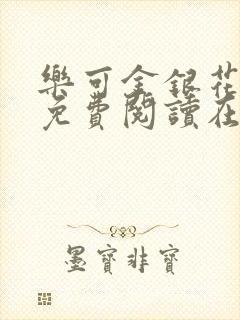 樂可金銀花
免費閱讀在
墨寶非寶